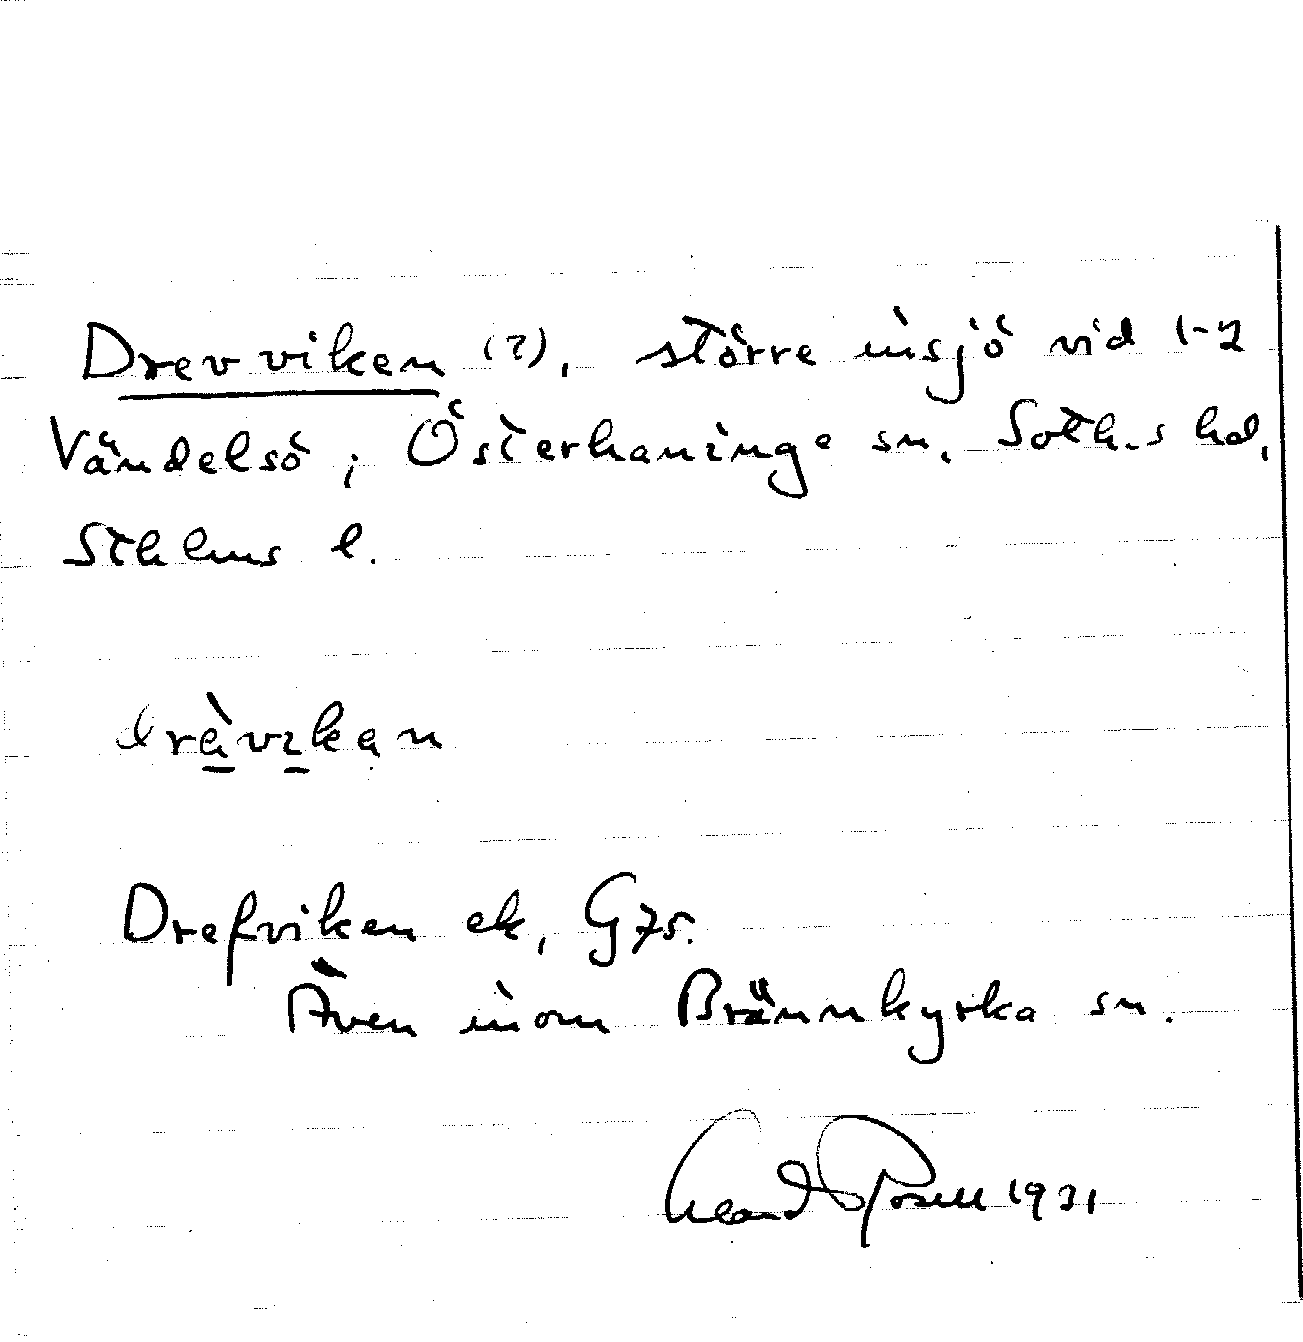 Drevviken (?), större insjö vid 1-2
Vändelsö, Österhaninge sn. Soth.s hd,
Sthlms l.
dràvɪkan
Drefviken ek, G 75.
Även inom Brännkyrka sn.
1931